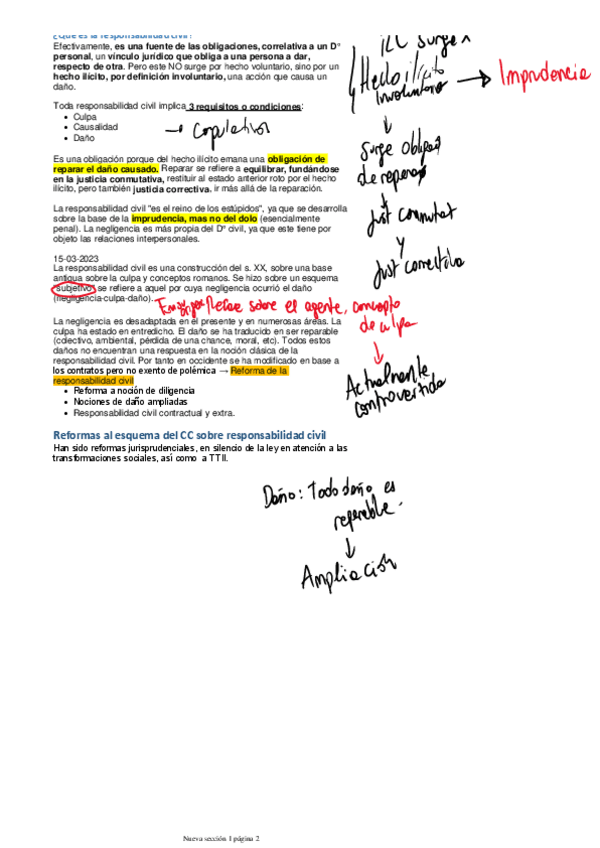 ¿Qué es la responsabilidad civil?
Efectivamente, es una fuente de las obligaciones, correlativa a un D°
personal, un vínculo jurídico que obliga a una persona a dar,
respecto de otra. Pero este NO surge por hecho voluntario, sino por un
hecho ilícito, por definición involuntario, una acción que causa un
daño.
Toda responsabilidad civil implica 3 requisitos o condiciones:
• Culpa
• Causalidad
• Daño
→ Copulativos
Es una obligación porque del hecho ilícito emana una obligación de
reparar el daño causado. Reparar se refiere a equilibrar, fundándose
en la justicia conmutativa, restituir al estado anterior roto por el hecho
ilícito, pero también justicia correctiva. ir más allá de la reparación.
La responsabilidad civil "es el reino de los estúpidos", ya que se desarrolla
sobre la base de la imprudencia, mas no del dolo (esencialmente
penal). La negligencia es más propia del D° civil, ya que este tiene por
objeto las relaciones interpersonales.
15-03-2023
La responsabilidad civil es una construcción del s. XX, sobre una base
antigua sobre la culpa y conceptos romanos. Se hizo sobre un esquema
"subjetivo" se refiere a aquel por cuya negligencia ocurrió el daño
(negligencia-culpa-daño).
sobre el agente, concepto
de culpa
↓
Actualmente
controvertida
La negligencia es desadaptada en el presente y en numerosas áreas. La
culpa ha estado en entredicho. El daño se ha traducido en ser reparable
(colectivo, ambiental, pérdida de una chance, moral, etc). Todos estos
daños no encuentran una respuesta en la noción clásica de la
responsabilidad civil. Por tanto en occidente se ha modificado en base a
los contratos pero no exento de polémica → Reforma de la
responsabilidad civil
• Reforma a noción de diligencia
• Nociones de daño ampliadas
• Responsabilidad civil contractual y extra.
surge x
Hecho ilícito
Involuntario
→ Imprudencia
↓
Surge obligac
de reparar
↓
Just conmutat
y
Just correctiva
Reformas al esquema del CC sobre responsabilidad civil
Han sido reformas jurisprudenciales, en silencio de la ley en atención a las
transformaciones sociales, así como a TTII.
Daño: Todo daño es
reparable.
↓
Ampliación
Nueva sección 1 página 2